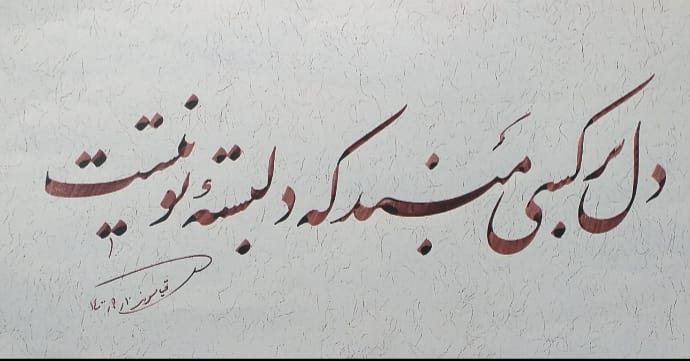 دل بر کسی مَبند که دلبستهٔ تو نیست